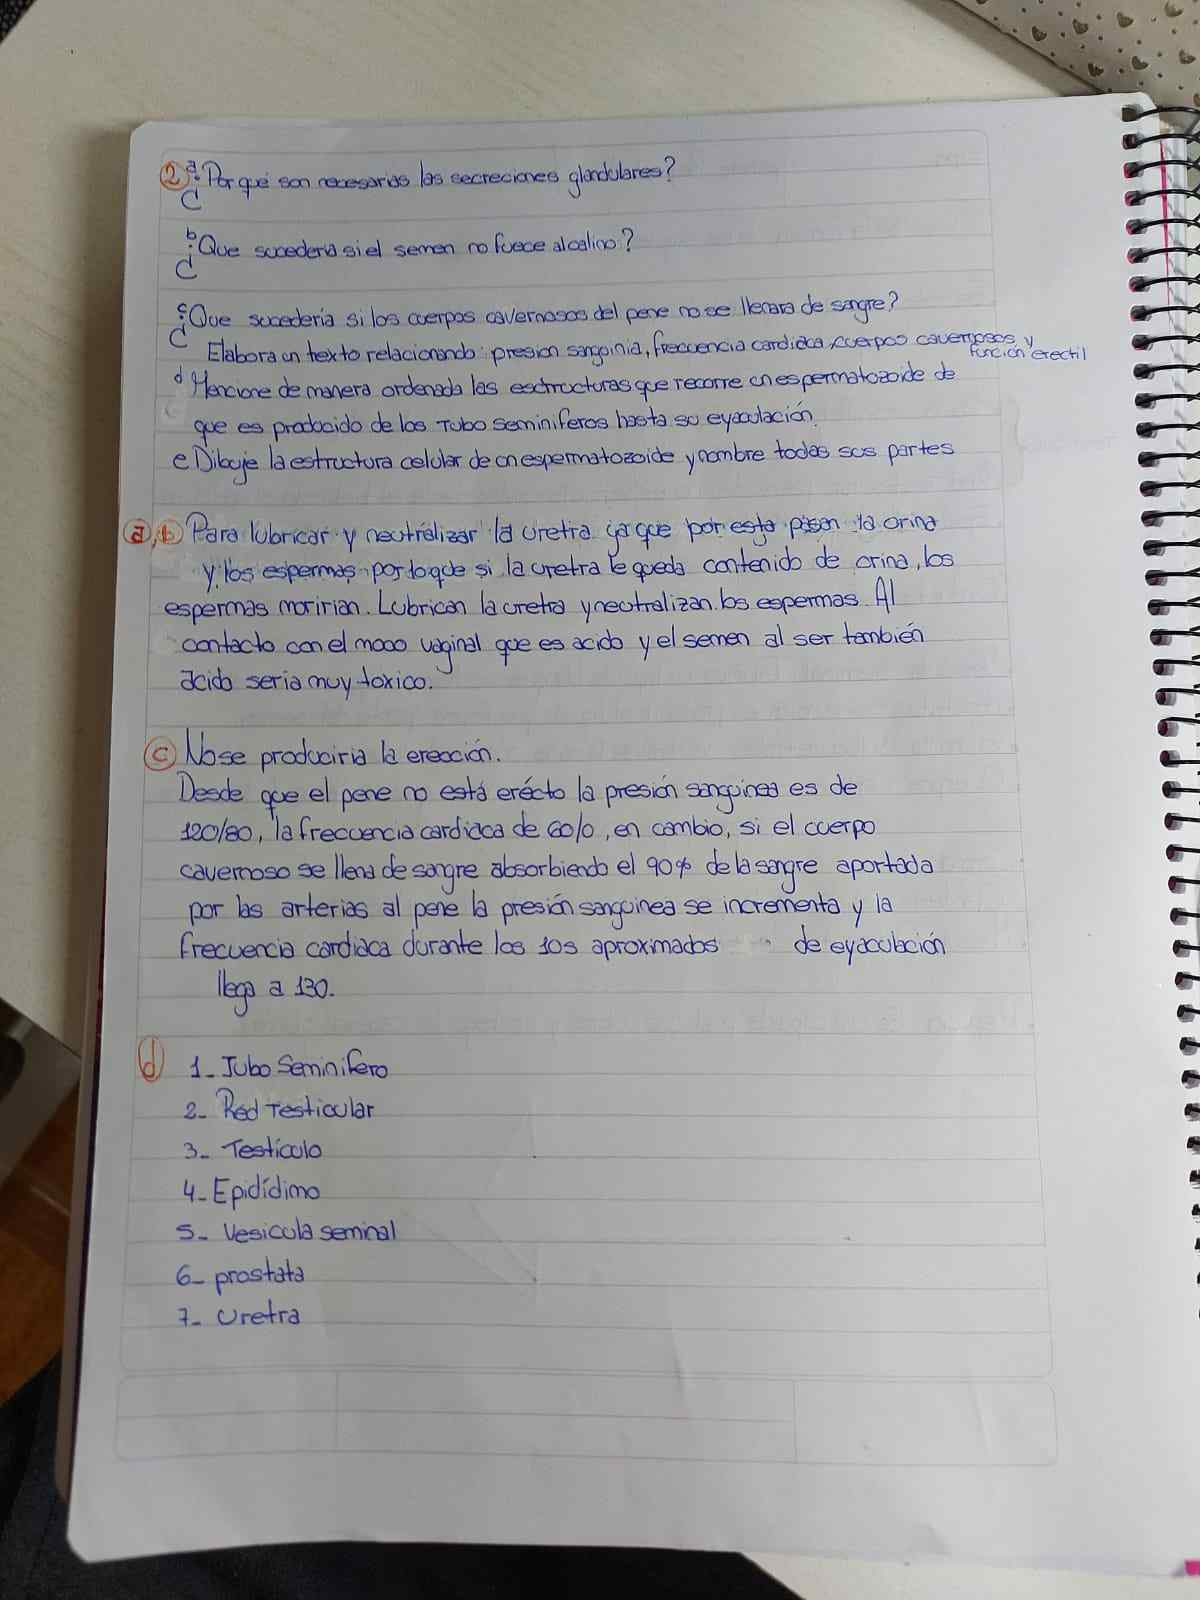 2 a ¿Por qué son necesarias las secreciones glandulares?
b ¿Que sucederia si el semen no fuece alcalino?
c ¿Que sucedería si los cuerpos cavernosos del pene no se llenara de sangre?
Elabora un texto relacionando: presion sanguinia, frecuencia cardiaca, cuerpos cavernosos y
función erectil
d Mencione de manera ordenada las esctructuras que recorre un espermatozoide de
que es producido de los Tubo seminiferos hasta su eyaculación.
e Dibuje la estructura celular de un espermatozoide y nombre todas sus partes
a, b Para lubricar y neutralizar la uretra ya que por esta pasan la orina
y los espermas por lo que si la uretra le queda contenido de orina, los
espermas moririan. Lubrican la uretra y neutralizan los espermas. Al
contacto con el moco vaginal que es acido y el semen al ser también
ácido seria muy toxico.
c No se produciria la erección.
Desde que el pene no está erécto la presión sanguinea es de
120/80, la frecuencia cardiaca de 60/0, en cambio, si el cuerpo
cavernoso se llena de sangre absorbiendo el 90% de la sangre aportada
por las arterias al pene la presión sanguinea se incrementa y la
frecuencia cardiaca durante los 10s aproximados de eyaculación
llega a 130.
d 1- Tubo Seminifero
2- Red Testicular
3- Testículo
4- Epidídimo
5- Vesicula seminal
6- prostata
7- Uretra